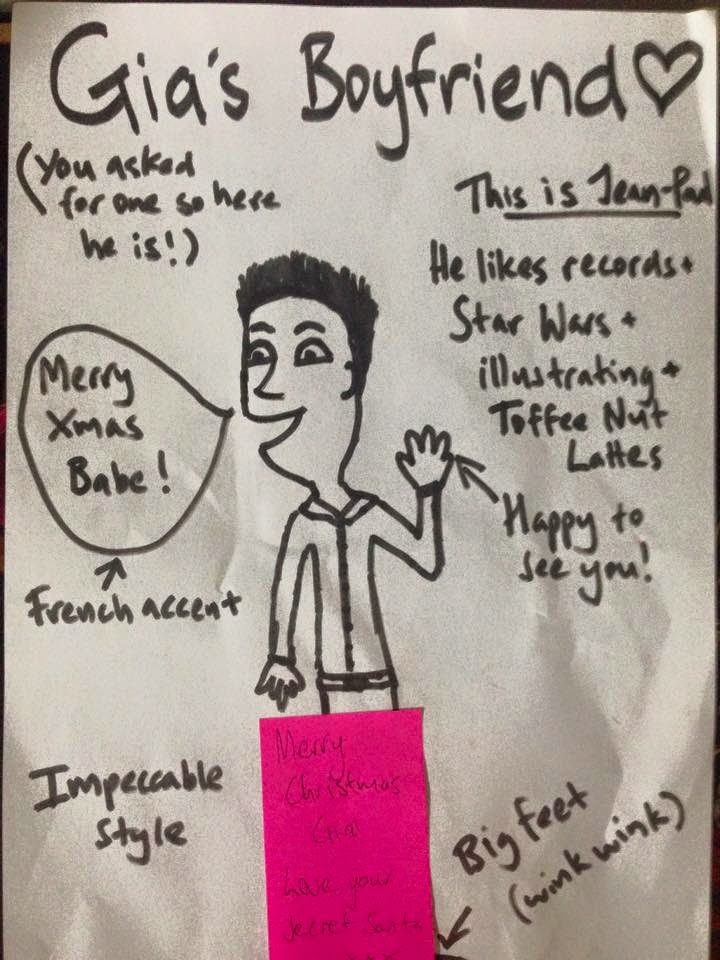 Gia's Boyfriend♡
(You asked
for one so here
he is!)
This is Jean-Paul
He likes records +
Star Wars +
illustrating +
Toffee Nut
Lattes
Merry
Xmas
Babe!
Happy to
see you!
French accent
Impeccable
Style
Merry
Christmas
Gia
Love your
Secret Santa
xxx
Big feet
(wink wink)